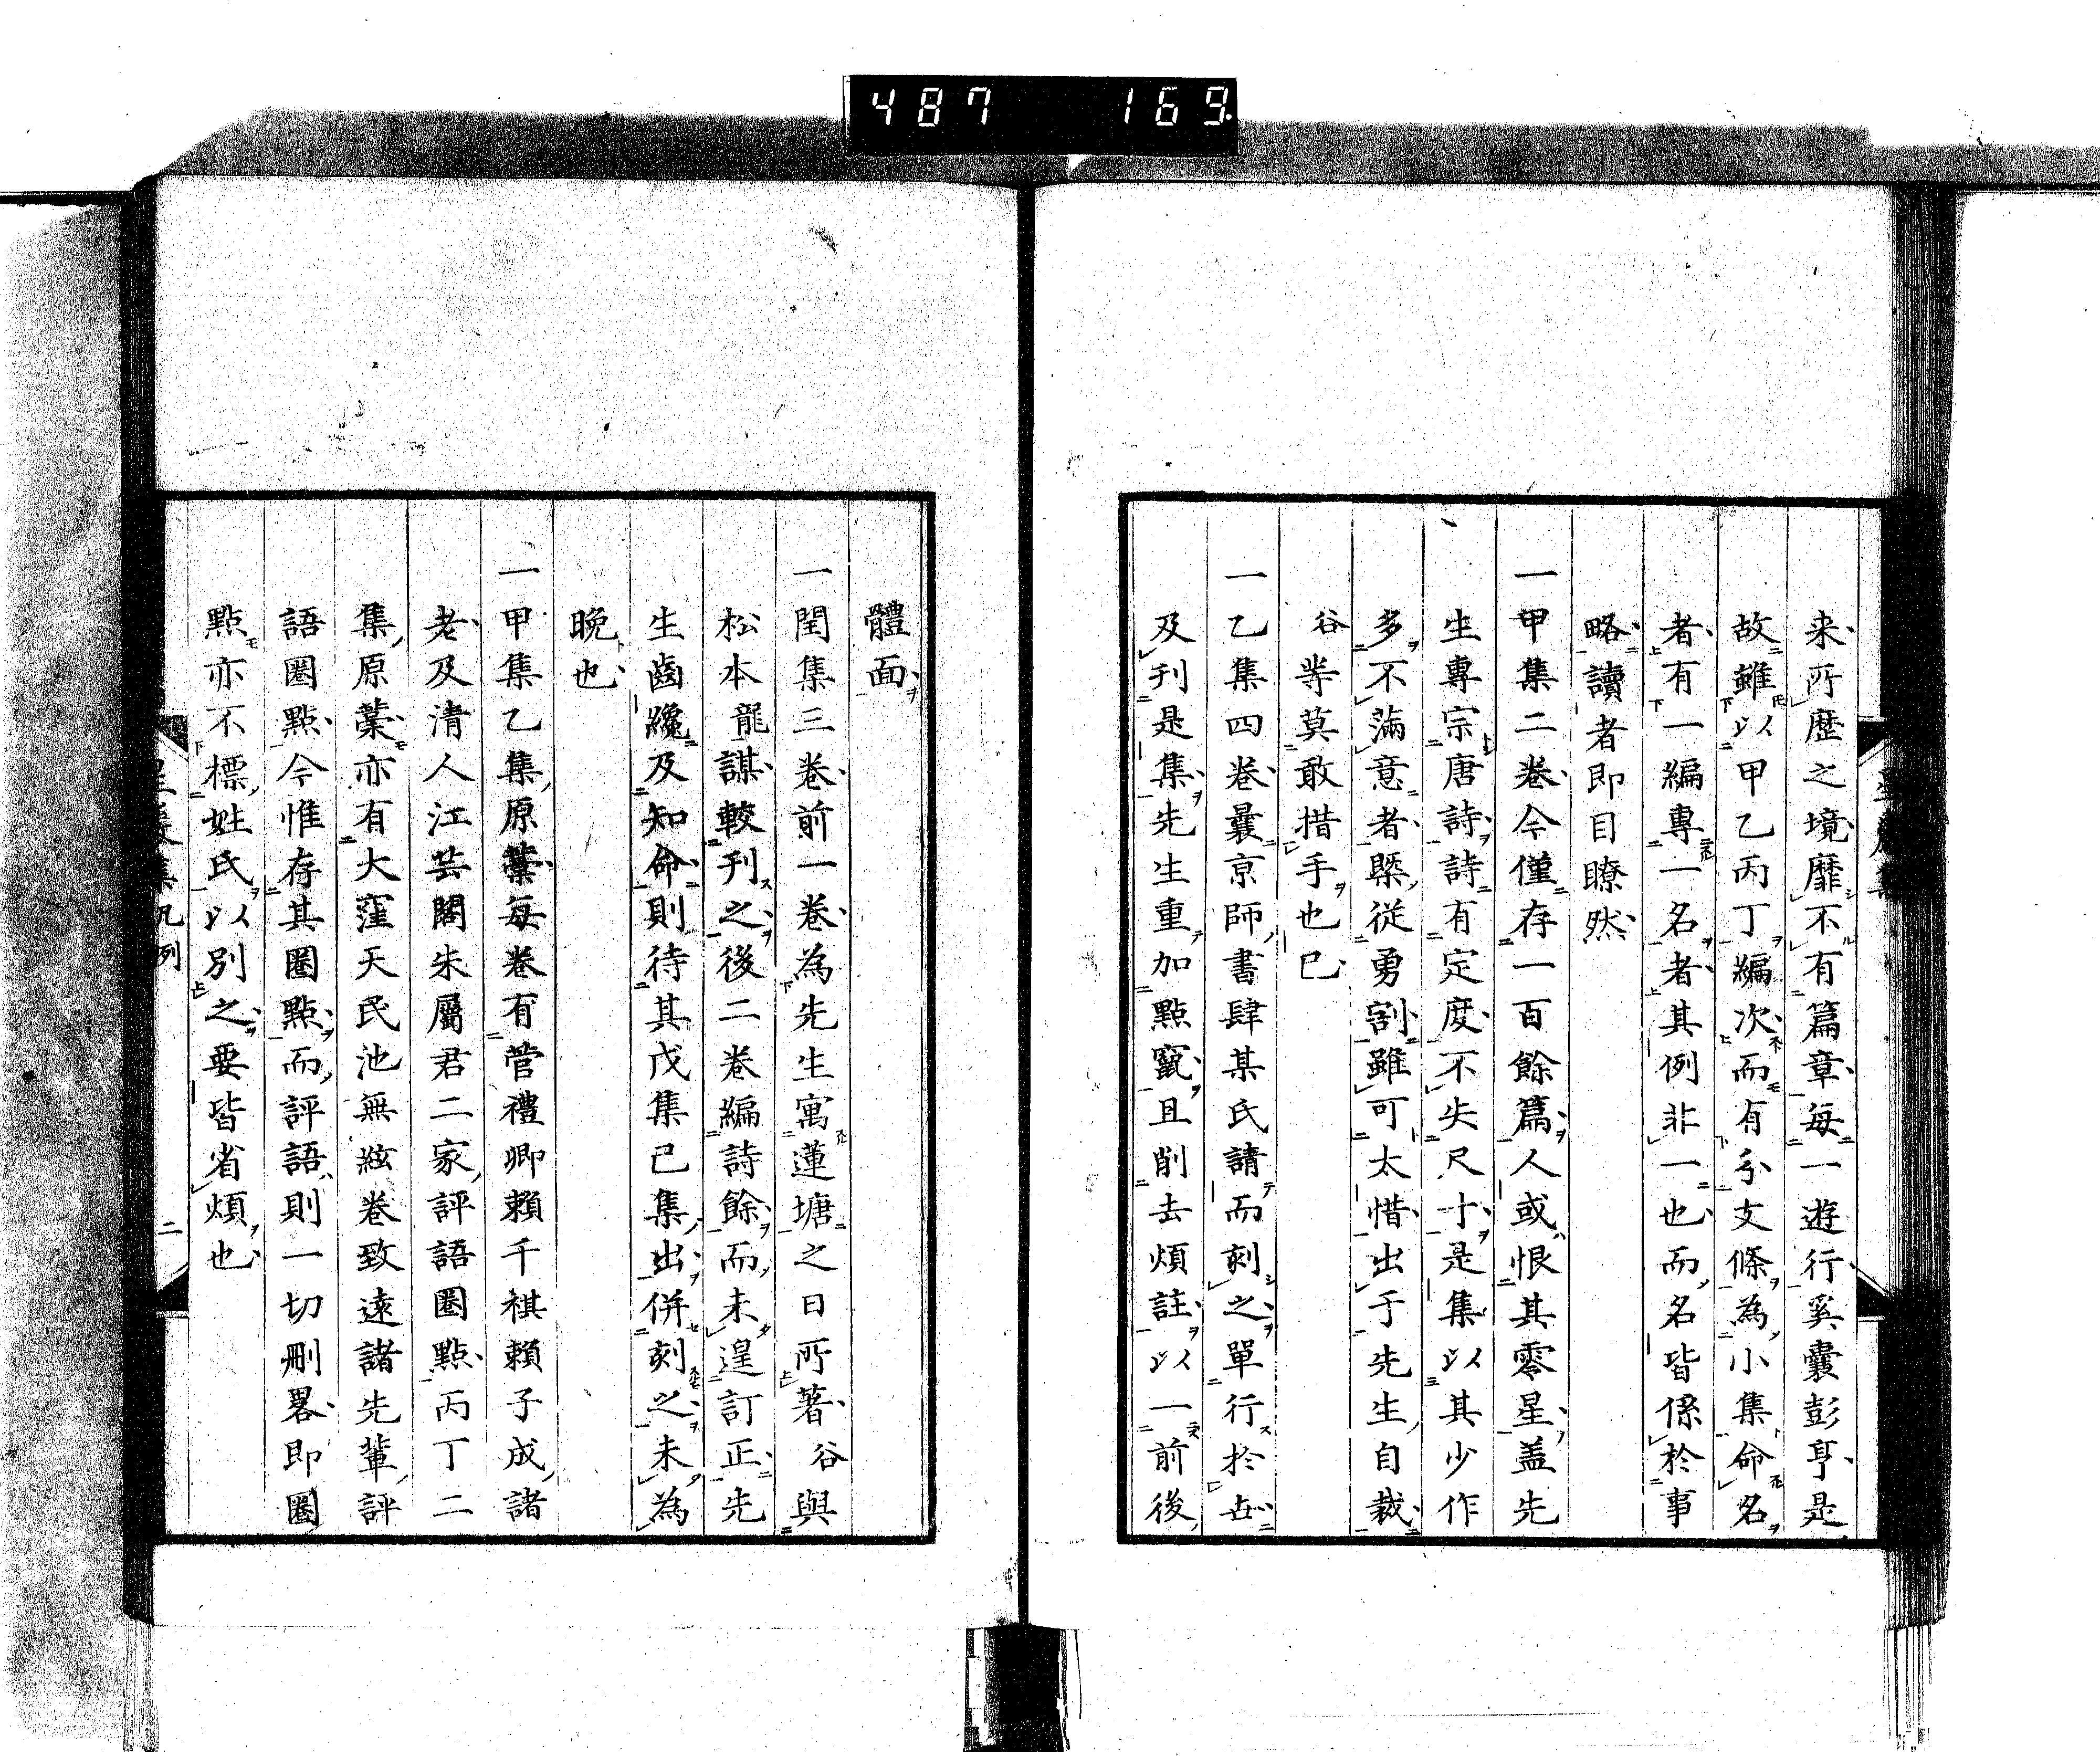 487 169
来所歷之境靡不有篇章每一遊行奚囊彭亨是
故雖以甲乙丙丁編次而有分支條為小集命名
者有一編專一名者其例非一也而名皆係於事
略讀者即目瞭然
一甲集二卷今僅存一百餘篇人或恨其零星盖先
生專宗唐詩詩有定度不失尺寸是集以其少作
多不滿意者槩從勇割雖可太惜出于先生自裁
谷等莫敢措手也已
一乙集四卷曩京師書肆某氏請而刻之單行於世
及刊是集先生重加點竄且削去煩註以一前後
體面
一閏集三卷前一卷為先生寓蓮塘之日所著谷與
松本龍謀較刊之後二卷編詩餘而未遑訂正先
生齒纔及知命則待其戊集己集出併刻之未為
晩也
一甲集乙集原藁每卷有菅禮卿賴千祺賴子成諸
老及清人江芸閣朱屬君二家評語圈點丙丁二
集原藁亦有大窪天民池無絃卷致遠諸先輩評
語圈點今惟存其圈點而評語則一切刪畧即圈
點亦不標姓氏以別之要皆省煩也
集凡例
二